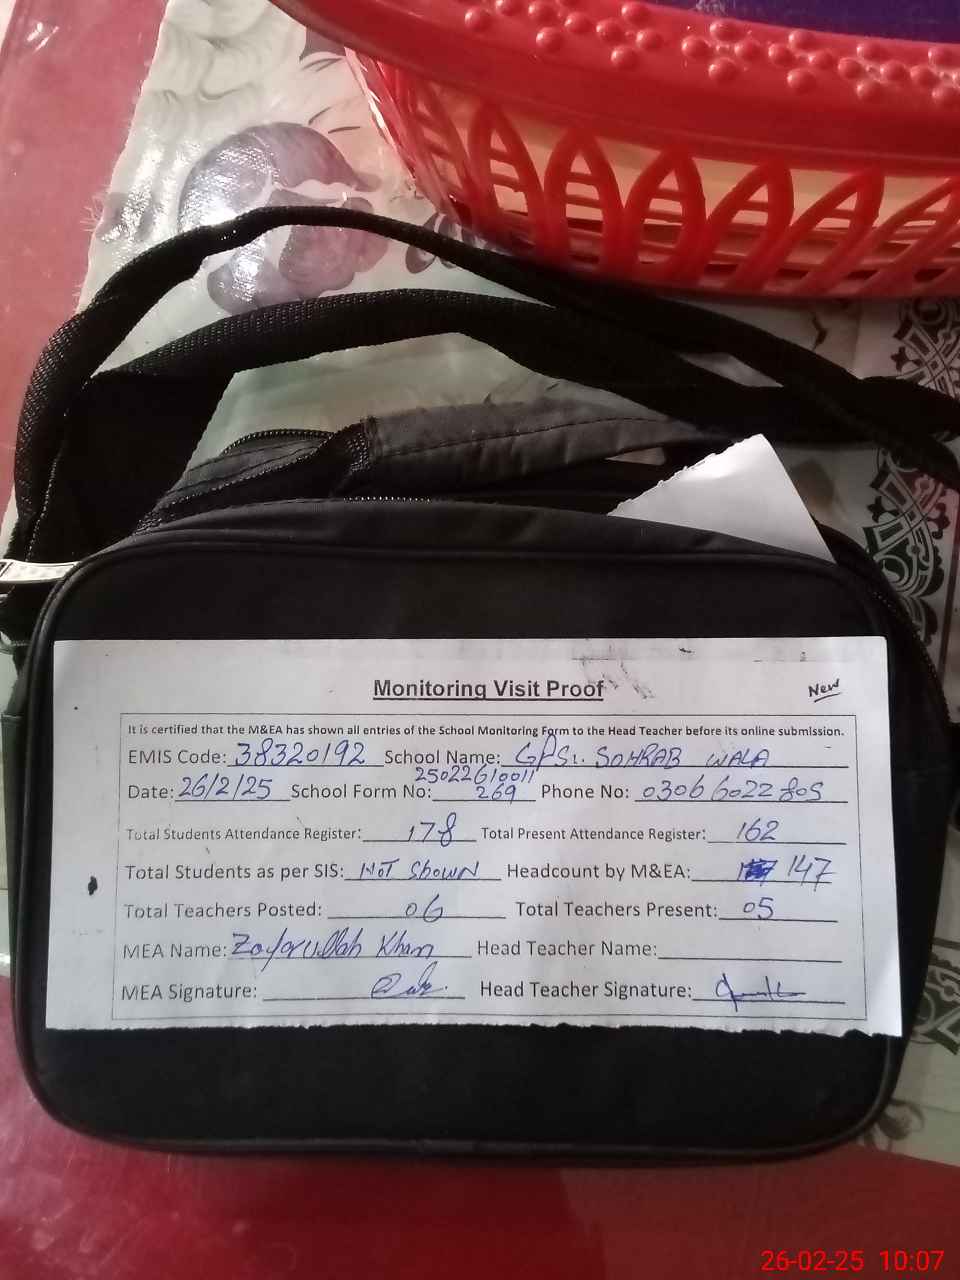 Monitoring Visit Proof
New
It is certified that the M&EA has shown all entries of the School Monitoring Form to the Head Teacher before its online submission.
EMIS Code: 38320192 School Name: GPS1. SOHRAB WALA
25022610011
Date: 26/2/25 School Form No: 269 Phone No: 03066022805
Total Students Attendance Register: 178 Total Present Attendance Register: 162
Total Students as per SIS: NOT Shown Headcount by M&EA: 147
Total Teachers Posted: 06 Total Teachers Present: 05
MEA Name: Zafarullah Khan Head Teacher Name:
MEA Signature: Head Teacher Signature:
26-02-25 10:07